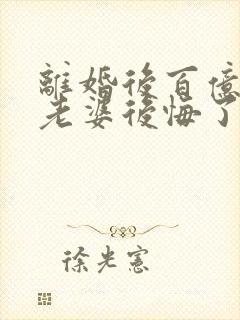 離婚後百億
老婆後悔了
徐光憲